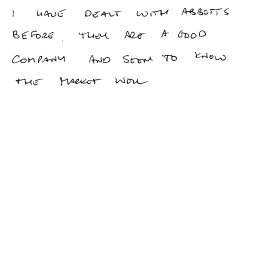 I HAVE DEALT WITH ABBOTTS
BEFORE. THEY ARE A GOOD
COMPANY AND SEEM TO KNOW
THE MARKET WELL